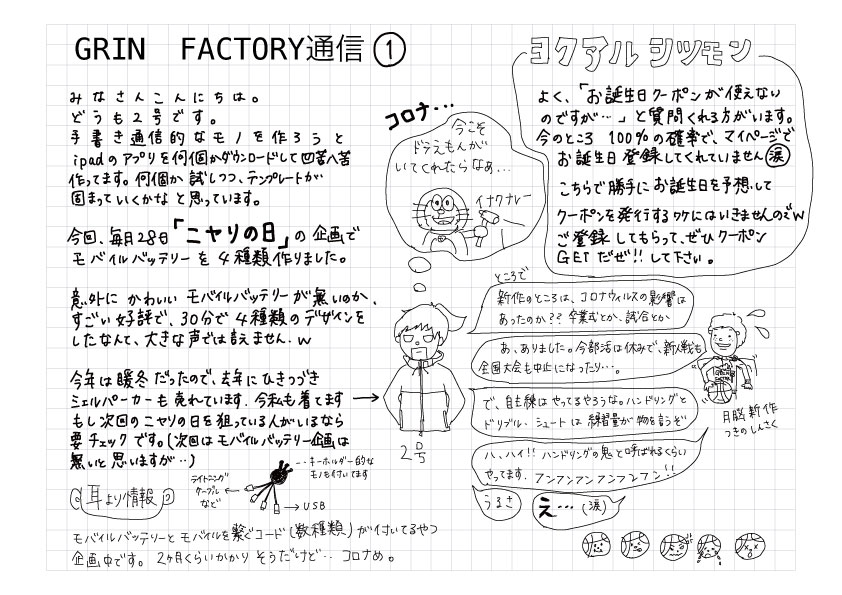 GRIN FACTORY通信①
みなさんこんにちは。
どうも2号です。
手書き通信的なモノを作ろうと
ipadのアプリを何個かダウンロードして四苦八苦
作ってます。何個か試しつつ、テンプレートが
固まっていくかなと思っています。
今回、毎月28日「ニヤリの日」の企画で
モバイルバッテリーを4種類作りました。
意外にかわいいモバイルバッテリーが無いのか、
すごい好評で、30分で4種類のデザインを
したなんて、大きな声では言えません.w
今年は暖冬だったので、去年にひきつづき
シェルパーカーも売れています。今私も着てます
もし次回のニヤリの日を狙っている人がいるなら
要チェックです。(次回はモバイルバッテリー企画は
無いと思いますが…)
耳より情報
ライトニング
ケーブル
など
キーホルダー的な
モノも付いてます
USB
モバイルバッテリーとモバイルを繋ぐコード(数種類)が付いてるやつ
企画中です。2ヶ月くらいかかりそうだけど… コロナめ。
コロナ…
今こそ
ドラえもんが
いてくれたらなぁ…
イナクナレー
2号
ヨクアルシツモン
よく、「お誕生日クーポンが使えない
のですが…」と質問くれる方がいます。
今のところ100%の確率で、マイページで
お誕生日登録してくれていません(涙)
こちらで勝手にお誕生日を予想して
クーポンを発行するワケにはいきませんのでw
ご登録してもらって、ぜひクーポン
GETだぜ!!して下さい。
ところで
新作のところは、コロナウィルスの影響は
あったのか?? 卒業式とか、試合とか
あ、ありました。今部活は休みで、新人戦も
全国大会も中止になったり…。
で、自主練はやってるやろな。ハンドリングと
ドリブル・シュートは練習量が物を言うぞ
ハ、ハイ!! ハンドリングの鬼と呼ばれるくらい
やってます. フンフンフンフンフンフン!!
うるさ
え…(涙)
月脳新作
つきのしんさく